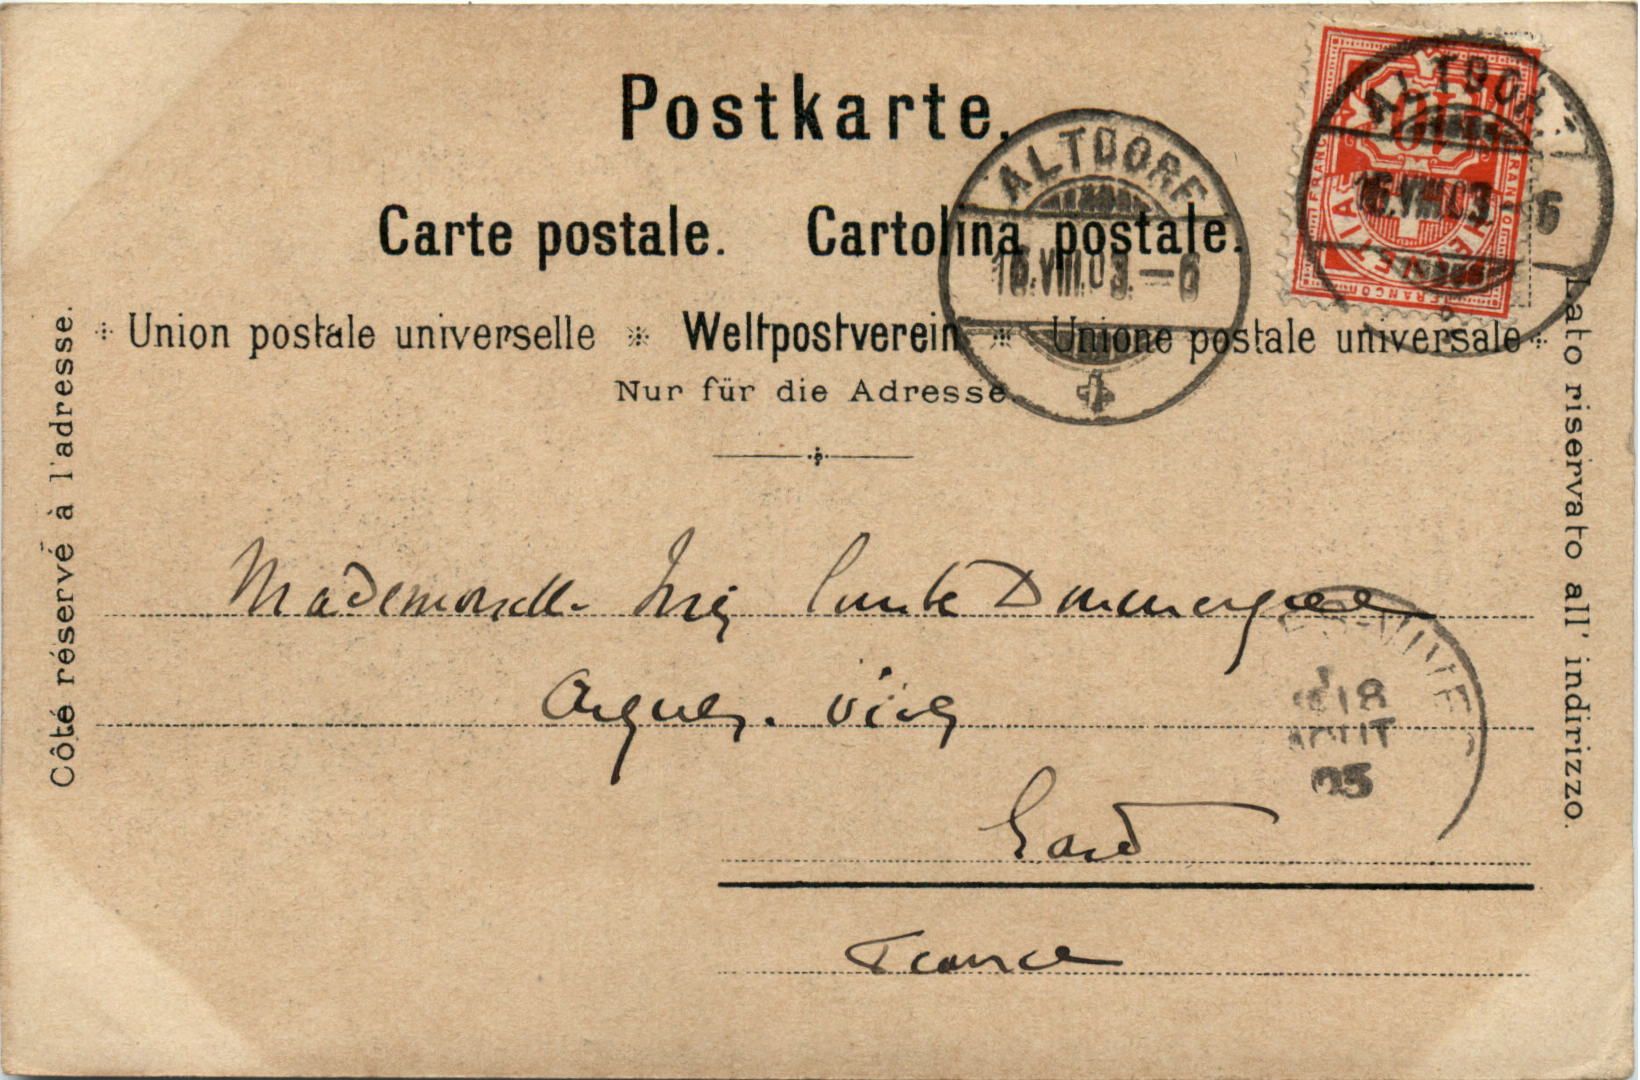 Postkarte.
Carte postale. Cartolina postale.
Union postale universelle Weltpostverein Unione postale universale
Nur für die Adresse.
Côté réservé à l'adresse.
Lato riservato all' indirizzo.
ALTDORF
16.VIII.03.–6
ALTDORF
16.VIII.03.–6
HELVETIA
10
FRANCO
FRANCO
FRANCO
Mademoiselle
Aigues-Vives
Gard
France
18
AOUT
03